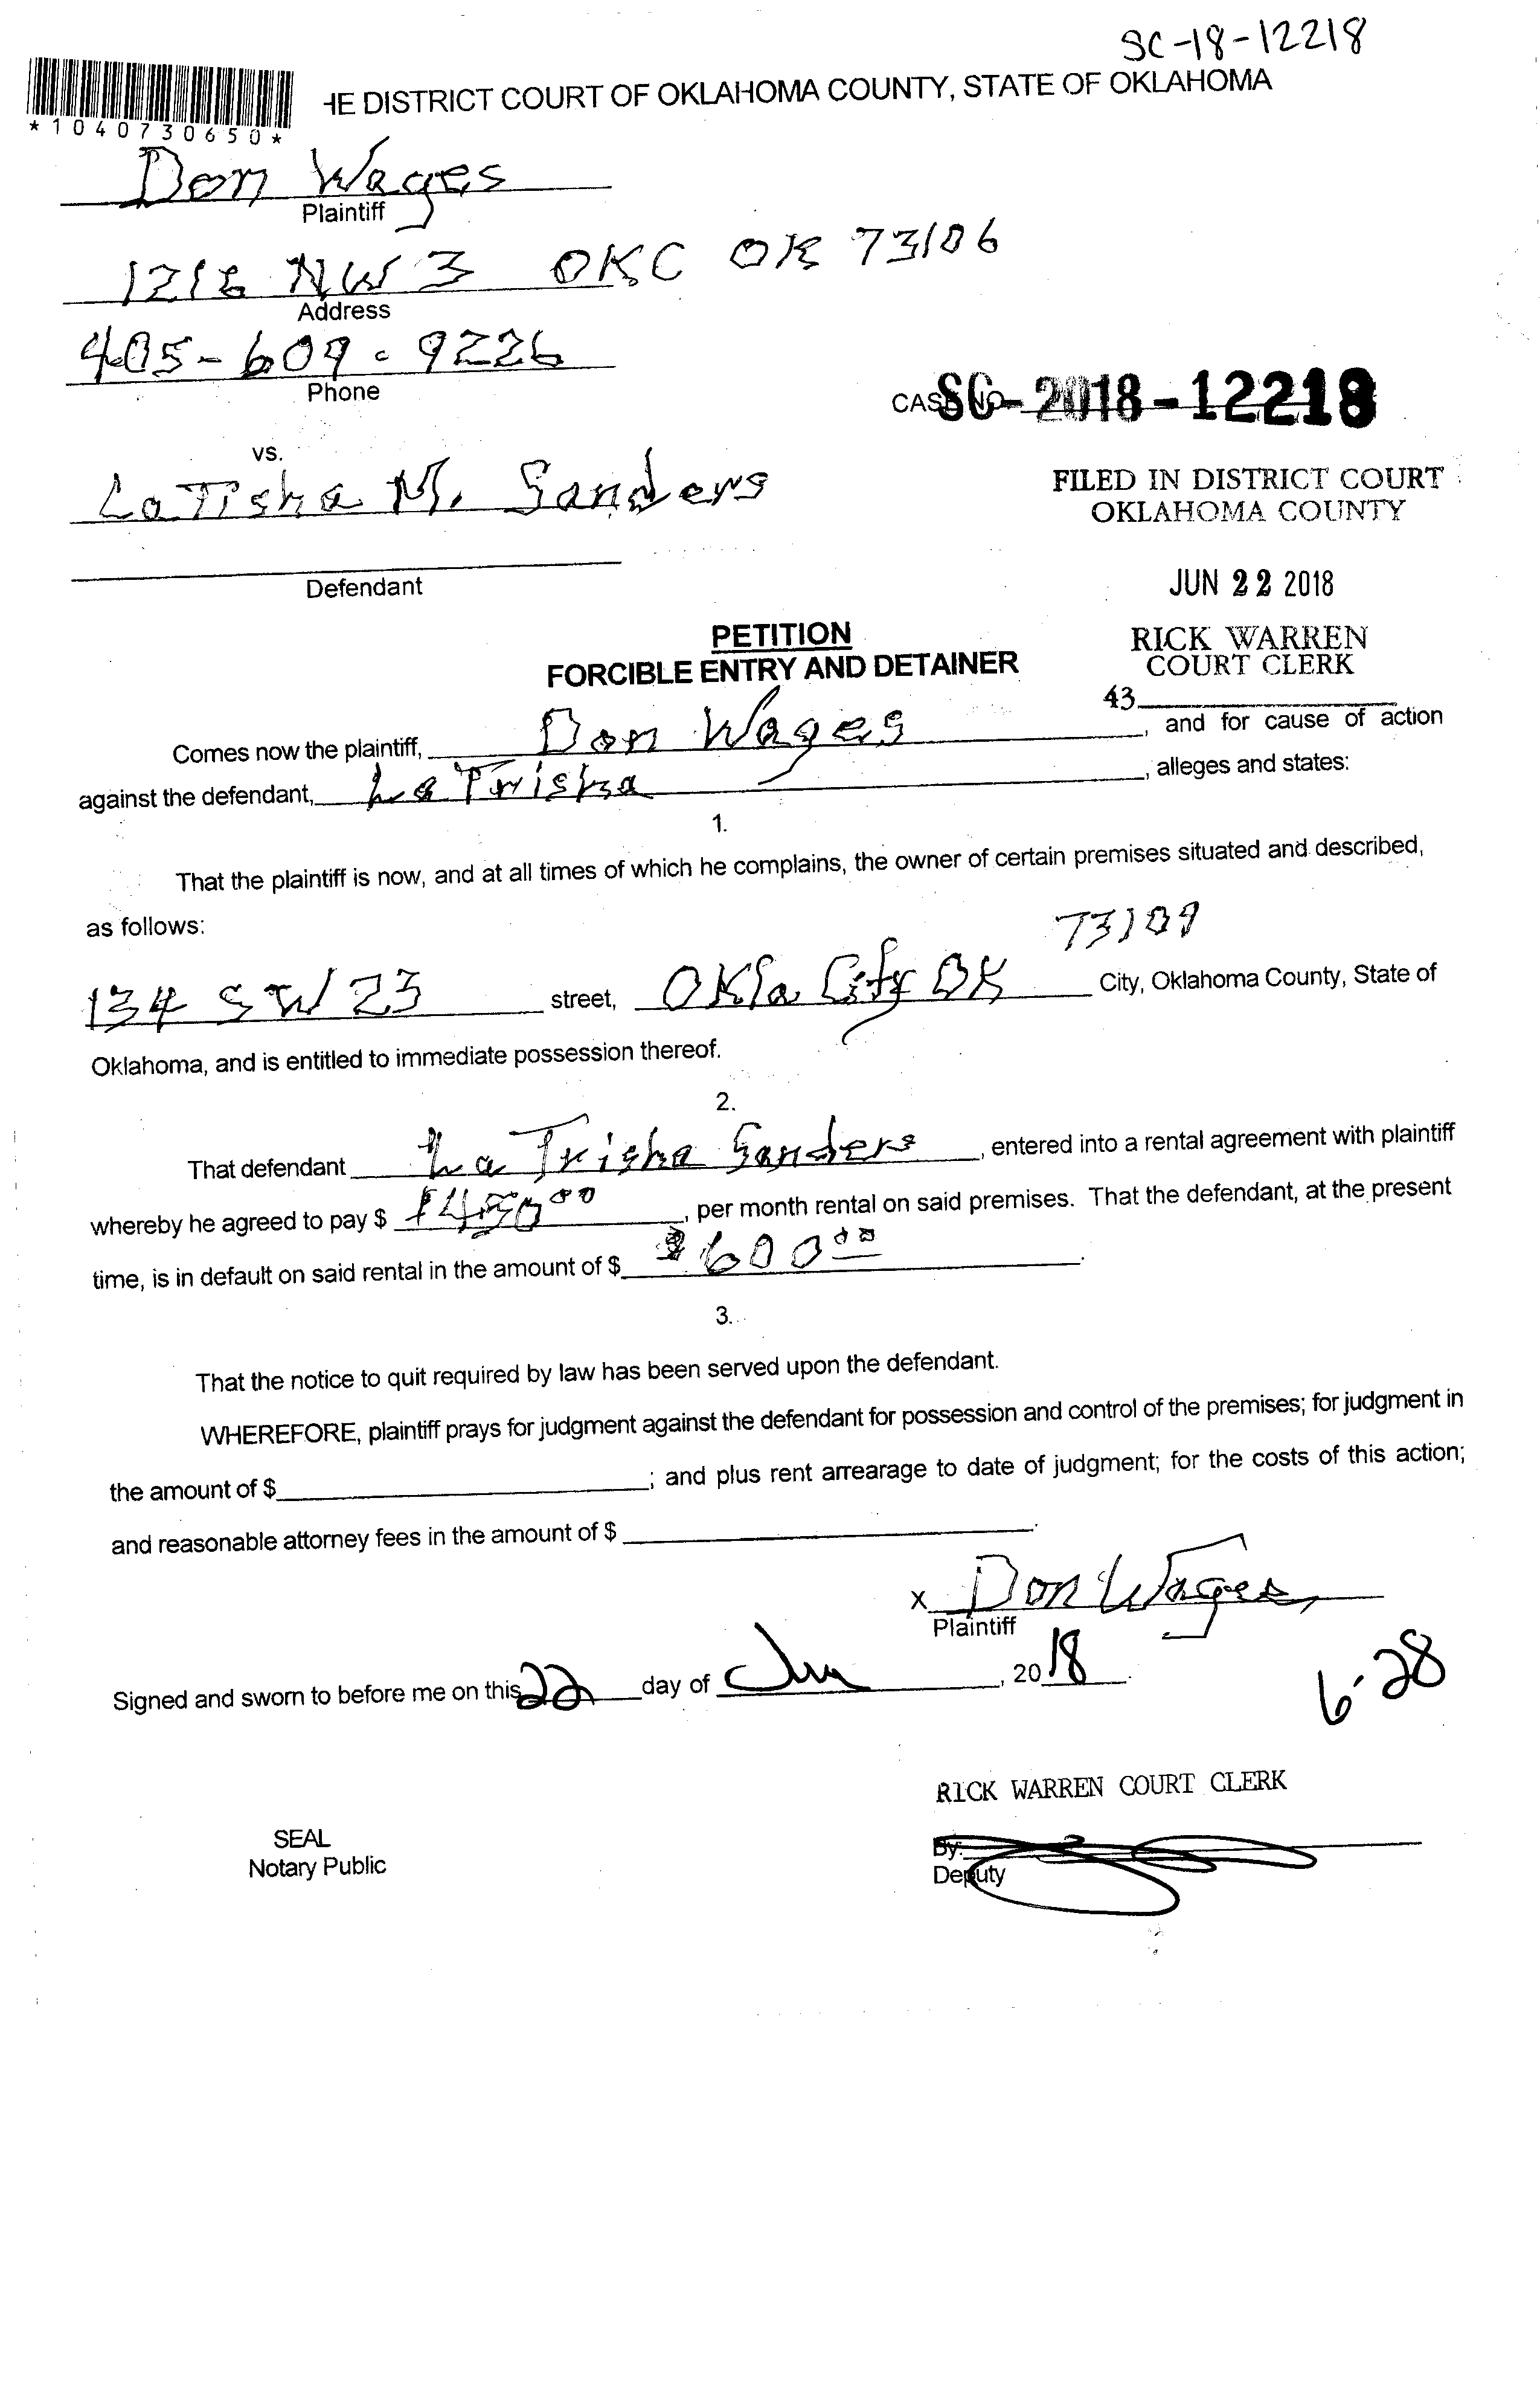 SC-18-12218
HE DISTRICT COURT OF OKLAHOMA COUNTY, STATE OF OKLAHOMA
*1040730650*
Don Wages
Plaintiff
1216 NW 3 OKC OK 73106
Address
405-609-9226
Phone
CASE NO. SC-2018-12218
vs.
LaTisha M. Sanders
FILED IN DISTRICT COURT
OKLAHOMA COUNTY
Defendant
JUN 22 2018
PETITION
RICK WARREN
FORCIBLE ENTRY AND DETAINER
COURT CLERK
43
Comes now the plaintiff, Don Wages, and for cause of action
against the defendant, La Trisha, alleges and states:
1.
That the plaintiff is now, and at all times of which he complains, the owner of certain premises situated and described,
as follows:
73109
134 SW 23 street, Okla City OK City, Oklahoma County, State of
Oklahoma, and is entitled to immediate possession thereof.
2.
That defendant La Trisha Sanders, entered into a rental agreement with plaintiff
whereby he agreed to pay $ $450.00, per month rental on said premises. That the defendant, at the present
time, is in default on said rental in the amount of $ $600.00.
3.
That the notice to quit required by law has been served upon the defendant.
WHEREFORE, plaintiff prays for judgment against the defendant for possession and control of the premises; for judgment in
the amount of $ ; and plus rent arrearage to date of judgment; for the costs of this action;
and reasonable attorney fees in the amount of $ .
x Don Wages
Plaintiff
Signed and sworn to before me on this 22 day of Jun, 2018.
6-28
RICK WARREN COURT CLERK
SEAL
Notary Public
By:
Deputy